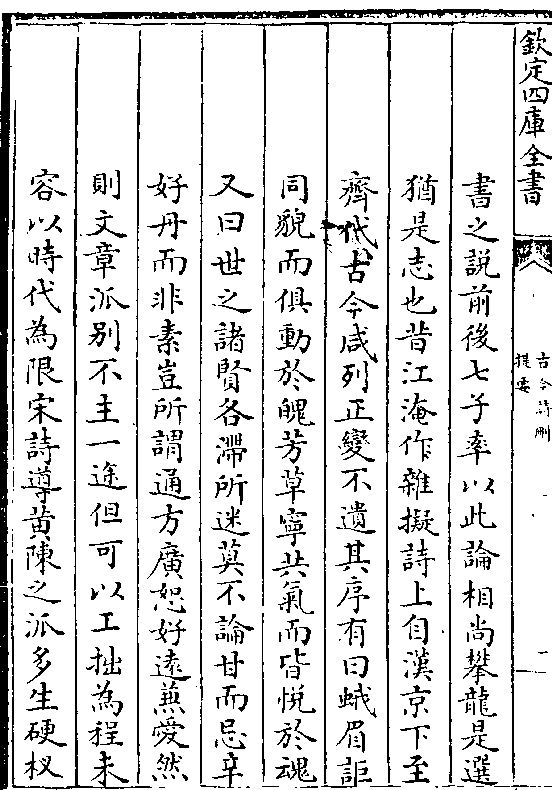 欽定四庫全書
古今詩刪
提要
書之説前後七子率以此論相尚攀龍是選
猶是志也昔江淹作雜擬詩上自漢京下至
齊代古今咸列正變不遺其序有曰蛾眉詎
同貌而俱動於魄芳草寧共氣而皆悅於魂
又曰世之諸賢各滯所迷莫不論甘而忌辛
好丹而非素豈所謂通方廣恕好逺兼愛然
則文章派别不主一途但可以工拙為程未
容以時代為限宋詩導黄陳之派多生硬杈